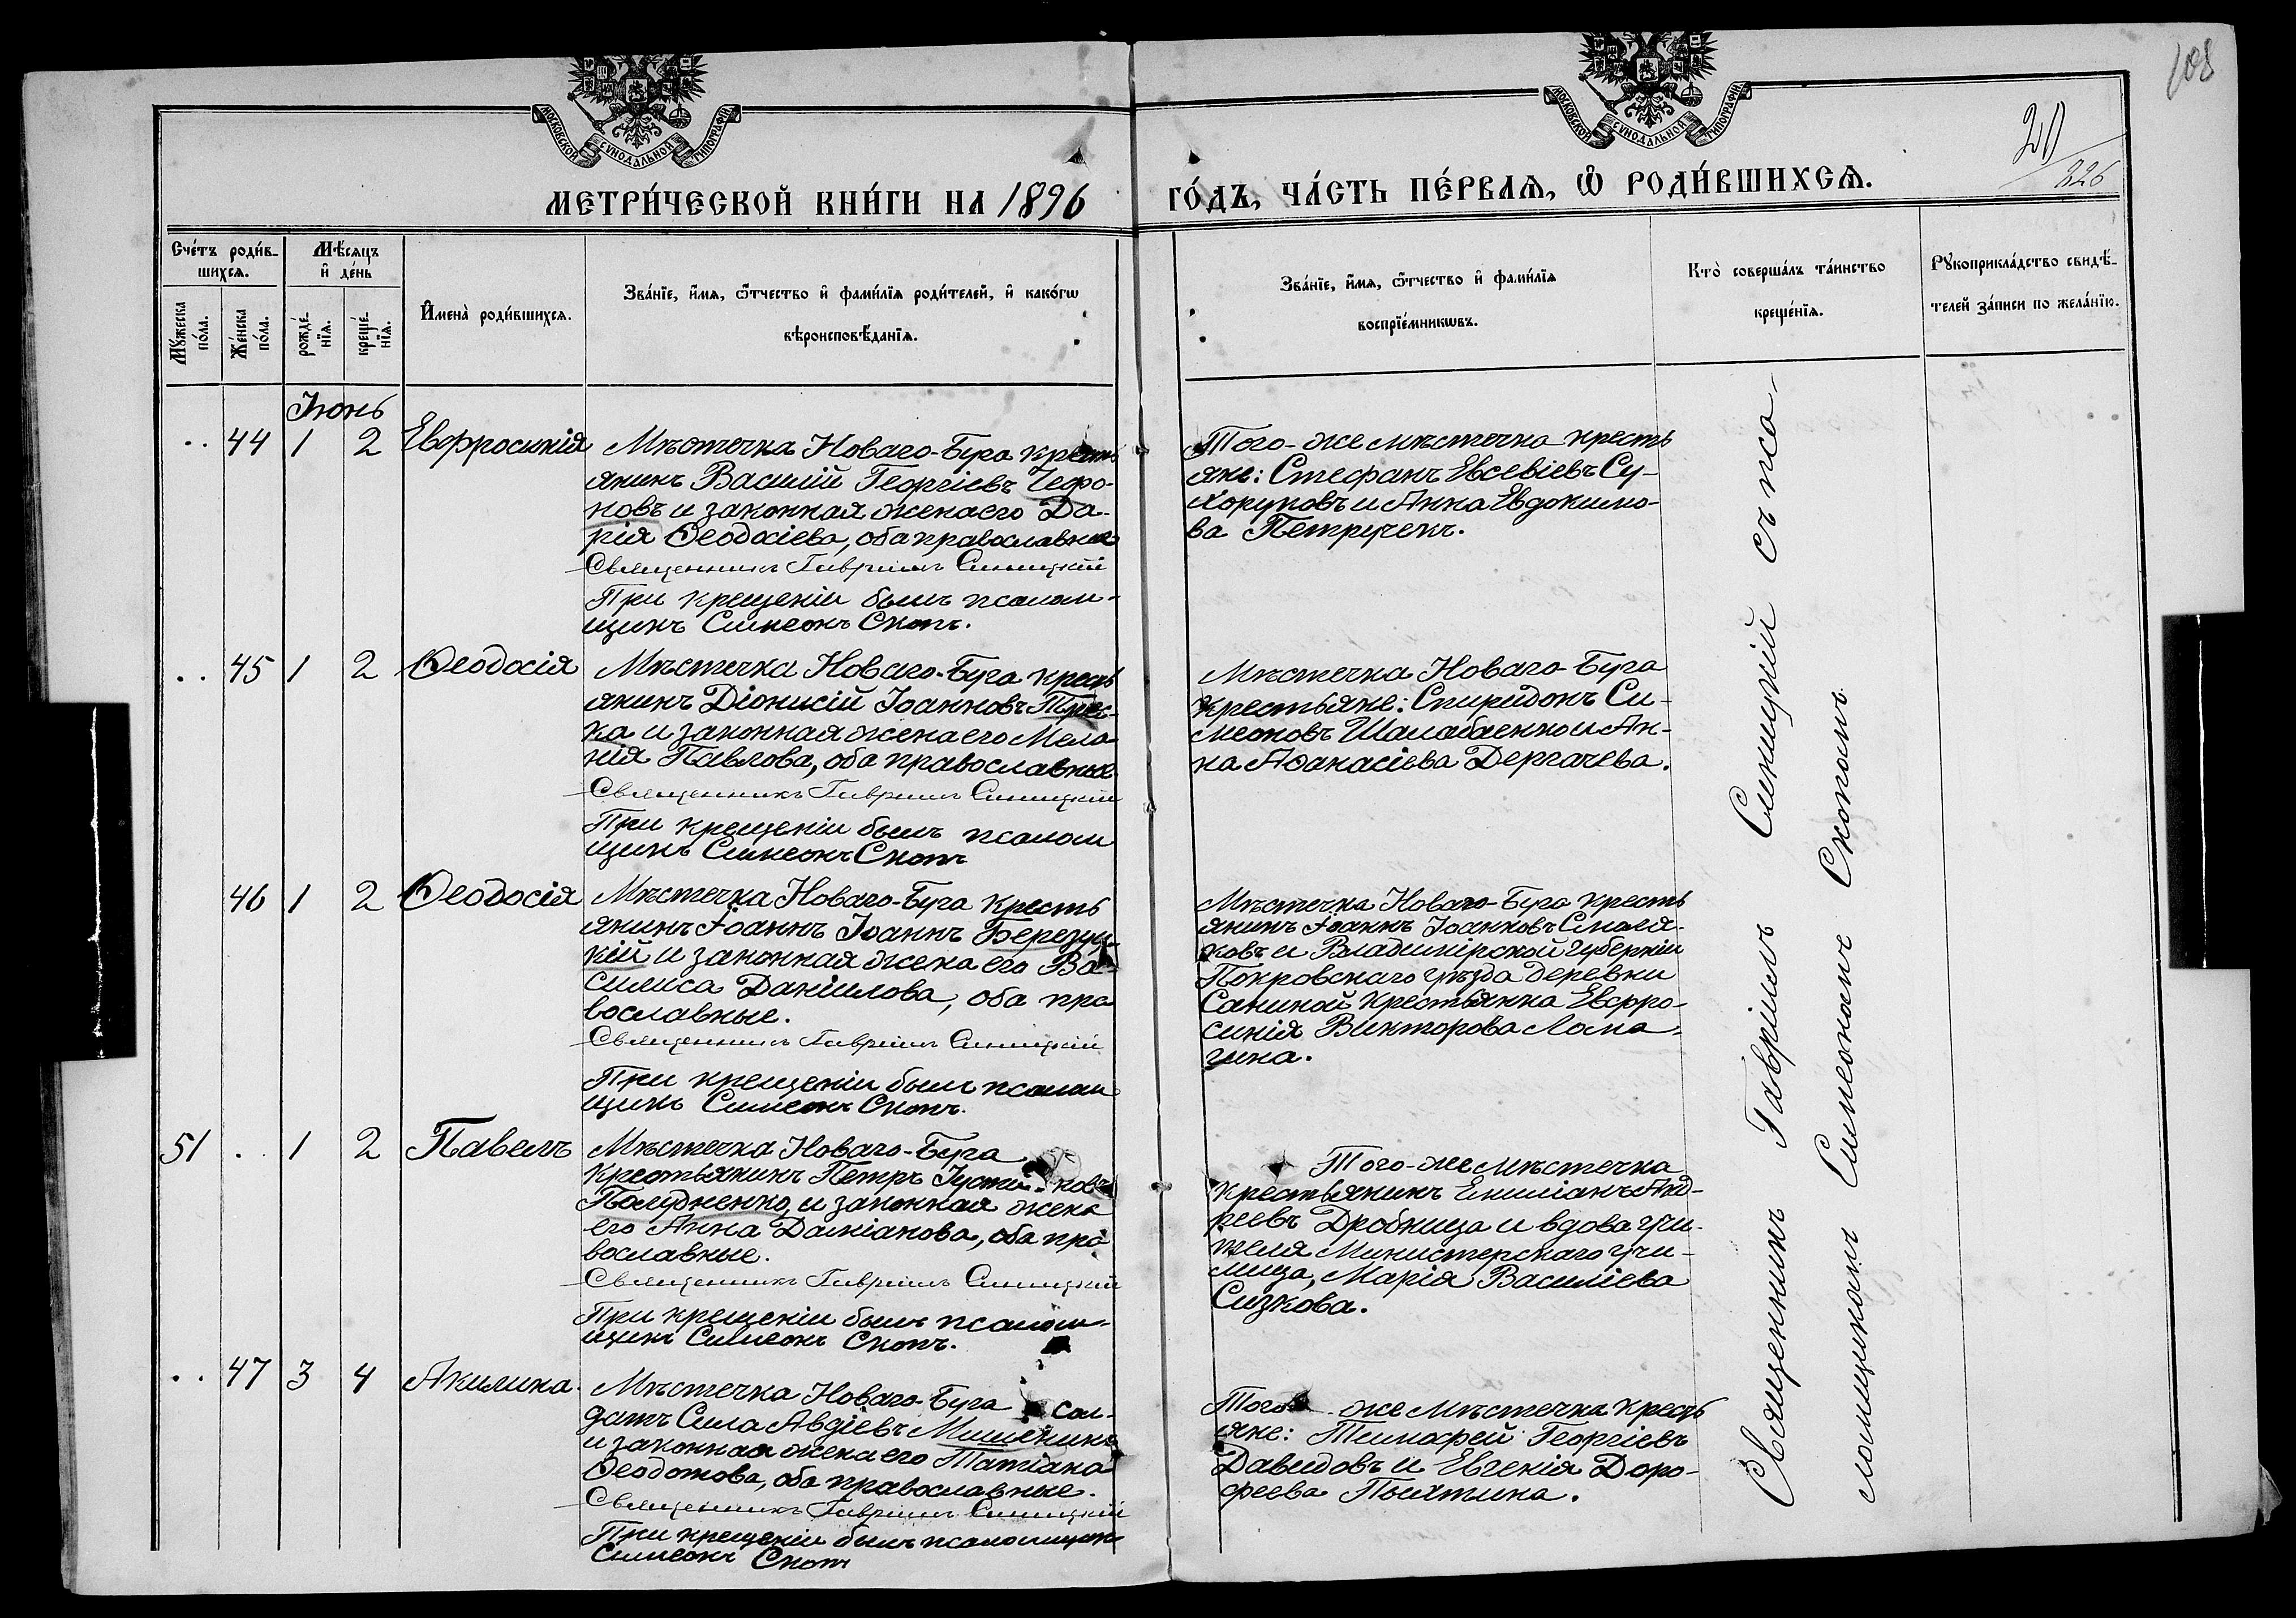 108
20
226
МОСКОВСКОЙ СѴНОДАЛЬНОЙ ТИПОГРАФІИ
МОСКОВСКОЙ СѴНОДАЛЬНОЙ ТИПОГРАФІИ
МЕТРИ́ЧЕСКОЙ КНИ́ГИ НА 1896
ГО́ДЪ, ЧА́СТЬ ПЕ́РВАѦ, Ѡ҆ РОДИ́ВШИХСѦ.
Сче́тъ роди́в-
шихсѧ.
Мꙋ́жеска по́ла.
Же́нска по́ла.
Мѣ́сѧцъ
и҆ де́нь
рожде́нїѧ.
креще́нїѧ.
И҆мена̀ роди́вшихсѧ.
Зва́нїе, и҆́мѧ, ѻ҆́тчество и҆ фами́лїѧ роди́телей, и҆ како́гѡ
вѣроисповѣ́данїѧ.
Зва́нїе, и҆́мѧ, ѻ҆́тчество и҆ фами́лїѧ
воспрїе́мникѡвъ.
Кто̀ соверша́лъ та́инство
креще́нїѧ.
Рꙋкоприкла́дство свидѣ́-
телей за́писи по жела́нїю.
Іюнь
.. 44 1 2 Евфросинія
Мѣстечка Новаго-Буга кресть
янинъ Василій Георгіевъ Чефо-
новъ и законная жена его Да-
рія Ѳеодосіева, оба православные
Священникъ Гавріилъ Синицкій
При крещеніи былъ псалом-
щикъ Симеонъ Скопъ.
Того-же мѣстечка кресть
яне: Стефанъ Евсевіевъ Су-
хоруковъ и Анна Евдокимо-
ва Петрученк.
.. 45 1 2 Ѳеодосія
Мѣстечка Новаго-Буга кресть
янинъ Діонисій Іоанновъ
ка и законная жена его Мела-
нія Павлова, оба православные
Священникъ Гавріилъ Синицкій
При крещеніи былъ псалом
щикъ Симеонъ Скопъ
Мѣстечка Новаго-Буга
крестьяне: Спиридонъ Си-
меоновъ Шалабаенко и Ан-
на Аѳанасіева Дергачева.
46 1 2 Ѳеодосія
Мѣстечка Новаго-Буга кресть
янинъ Іоаннъ Іоаннъ Березиц-
кій и законная жена его Ва-
силиса Даніилова, оба пра
вославные.
Священникъ Гавріилъ Синицкій
При крещеніи былъ псалом
щикъ Симеонъ Скопъ.
Мѣстечка Новаго-Буга кресть
янинъ Іоаннъ Іоанновъ Смоля-
ковъ и Владимірской губерніи
Покровскаго уѣзда деревни
Саниной крестьянка Евфро-
синія Викторова Лома-
гина.
51 . 1 2 Павелъ
Мѣстечка Новаго-Буга
крестьянинъ Петръ Іустиновъ
Полудненко, и законная жена
его Анна Даміанова, оба пра
вославные.
Священникъ Гавріилъ Синицкій
При крещеніи былъ псалом-
щикъ Симеонъ Скопъ.
Того-же мѣстечка
крестьянинъ Емиліанъ Анд-
реевъ Дробница и вдова учи-
теля Министерскаго учи-
лища, Марія Василіева
Сизкова.
.. 47 3 4 Акилина.
Мѣстечка Новаго-Буга сол-
датъ Сила Авдіевъ Мишенинъ
и законная жена его Татіана
Ѳеодотова, оба православные.
Священникъ Гавріилъ Синицкій
При крещеніи былъ псаломщик
Симеонъ Скопъ
Того же мѣстечка кресть
яне: Тимофей Георгіевъ
Давидовъ и Евгенія Доро-
феева Пыхтина.
Священникъ Гавріилъ Синицкій съ пса-
ломщикомъ Симеономъ Скопомъ